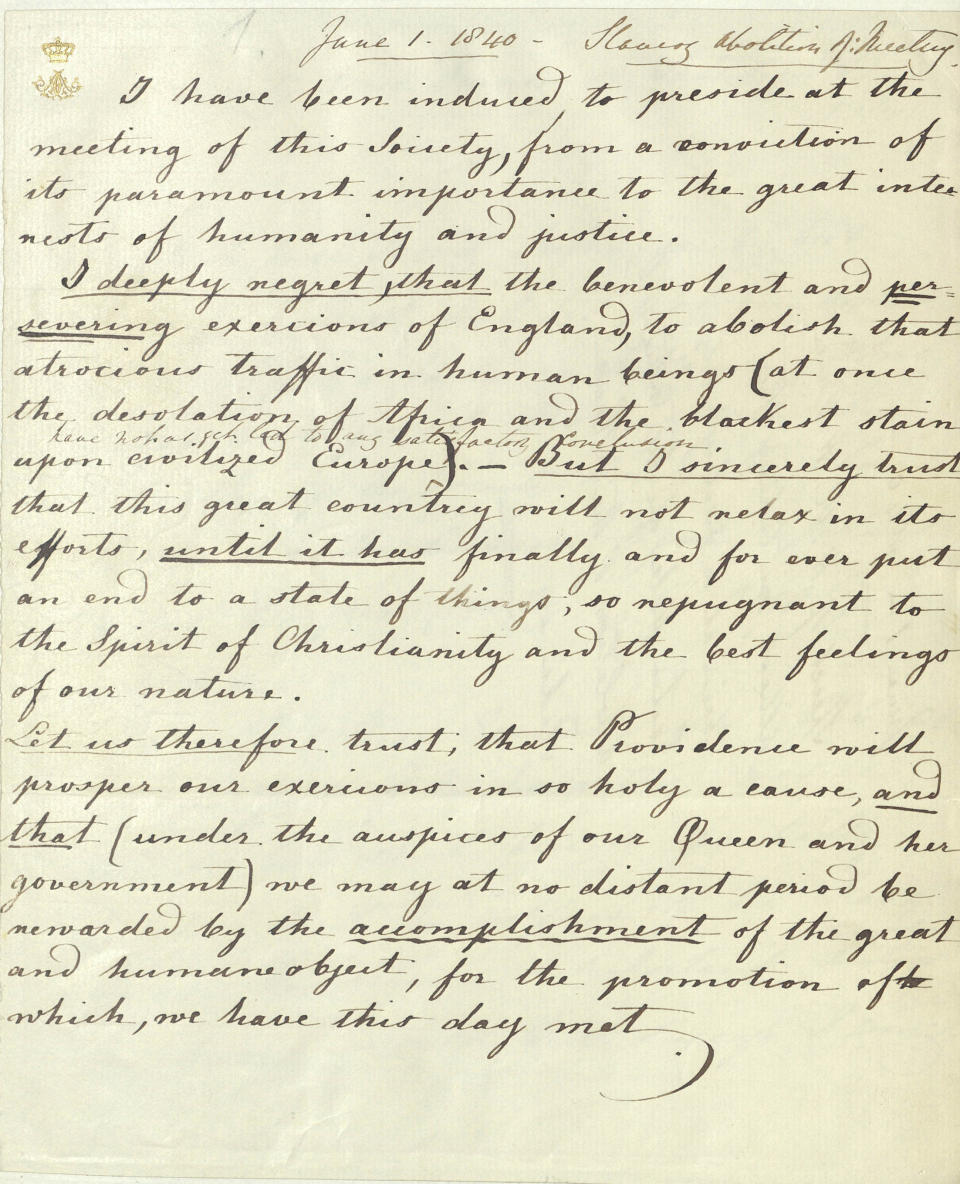 June 1. 1840 - Slavery Abolition Meeting.
I have been induced to preside at the
meeting of this Soiiety, from a conviction of
its paramount importance to the great inte=
rests of humanity and justice.
I deeply regret, that the benevolent and per=
severing exercions of England, to abolish that
atrocious traffic in human beings (at once
the desolation of Africa and the blackest stain
have not as yet led to any satisfactory conclusion
upon civilized Europe). — But I sincerely trust
that this great country will not relax in its
efforts, until it has finally and for ever put
an end to a state of things, so repugnant to
the Spirit of Christianity and the best feelings
of our nature.
Let us therefore trust, that Providence will
prosper our exercions in so holy a cause, and
that (under the auspices of our Queen and her
government) we may at no distant period be
rewarded by the accomplishment of the great
and humane object, for the promotion of
which, we have this day met.